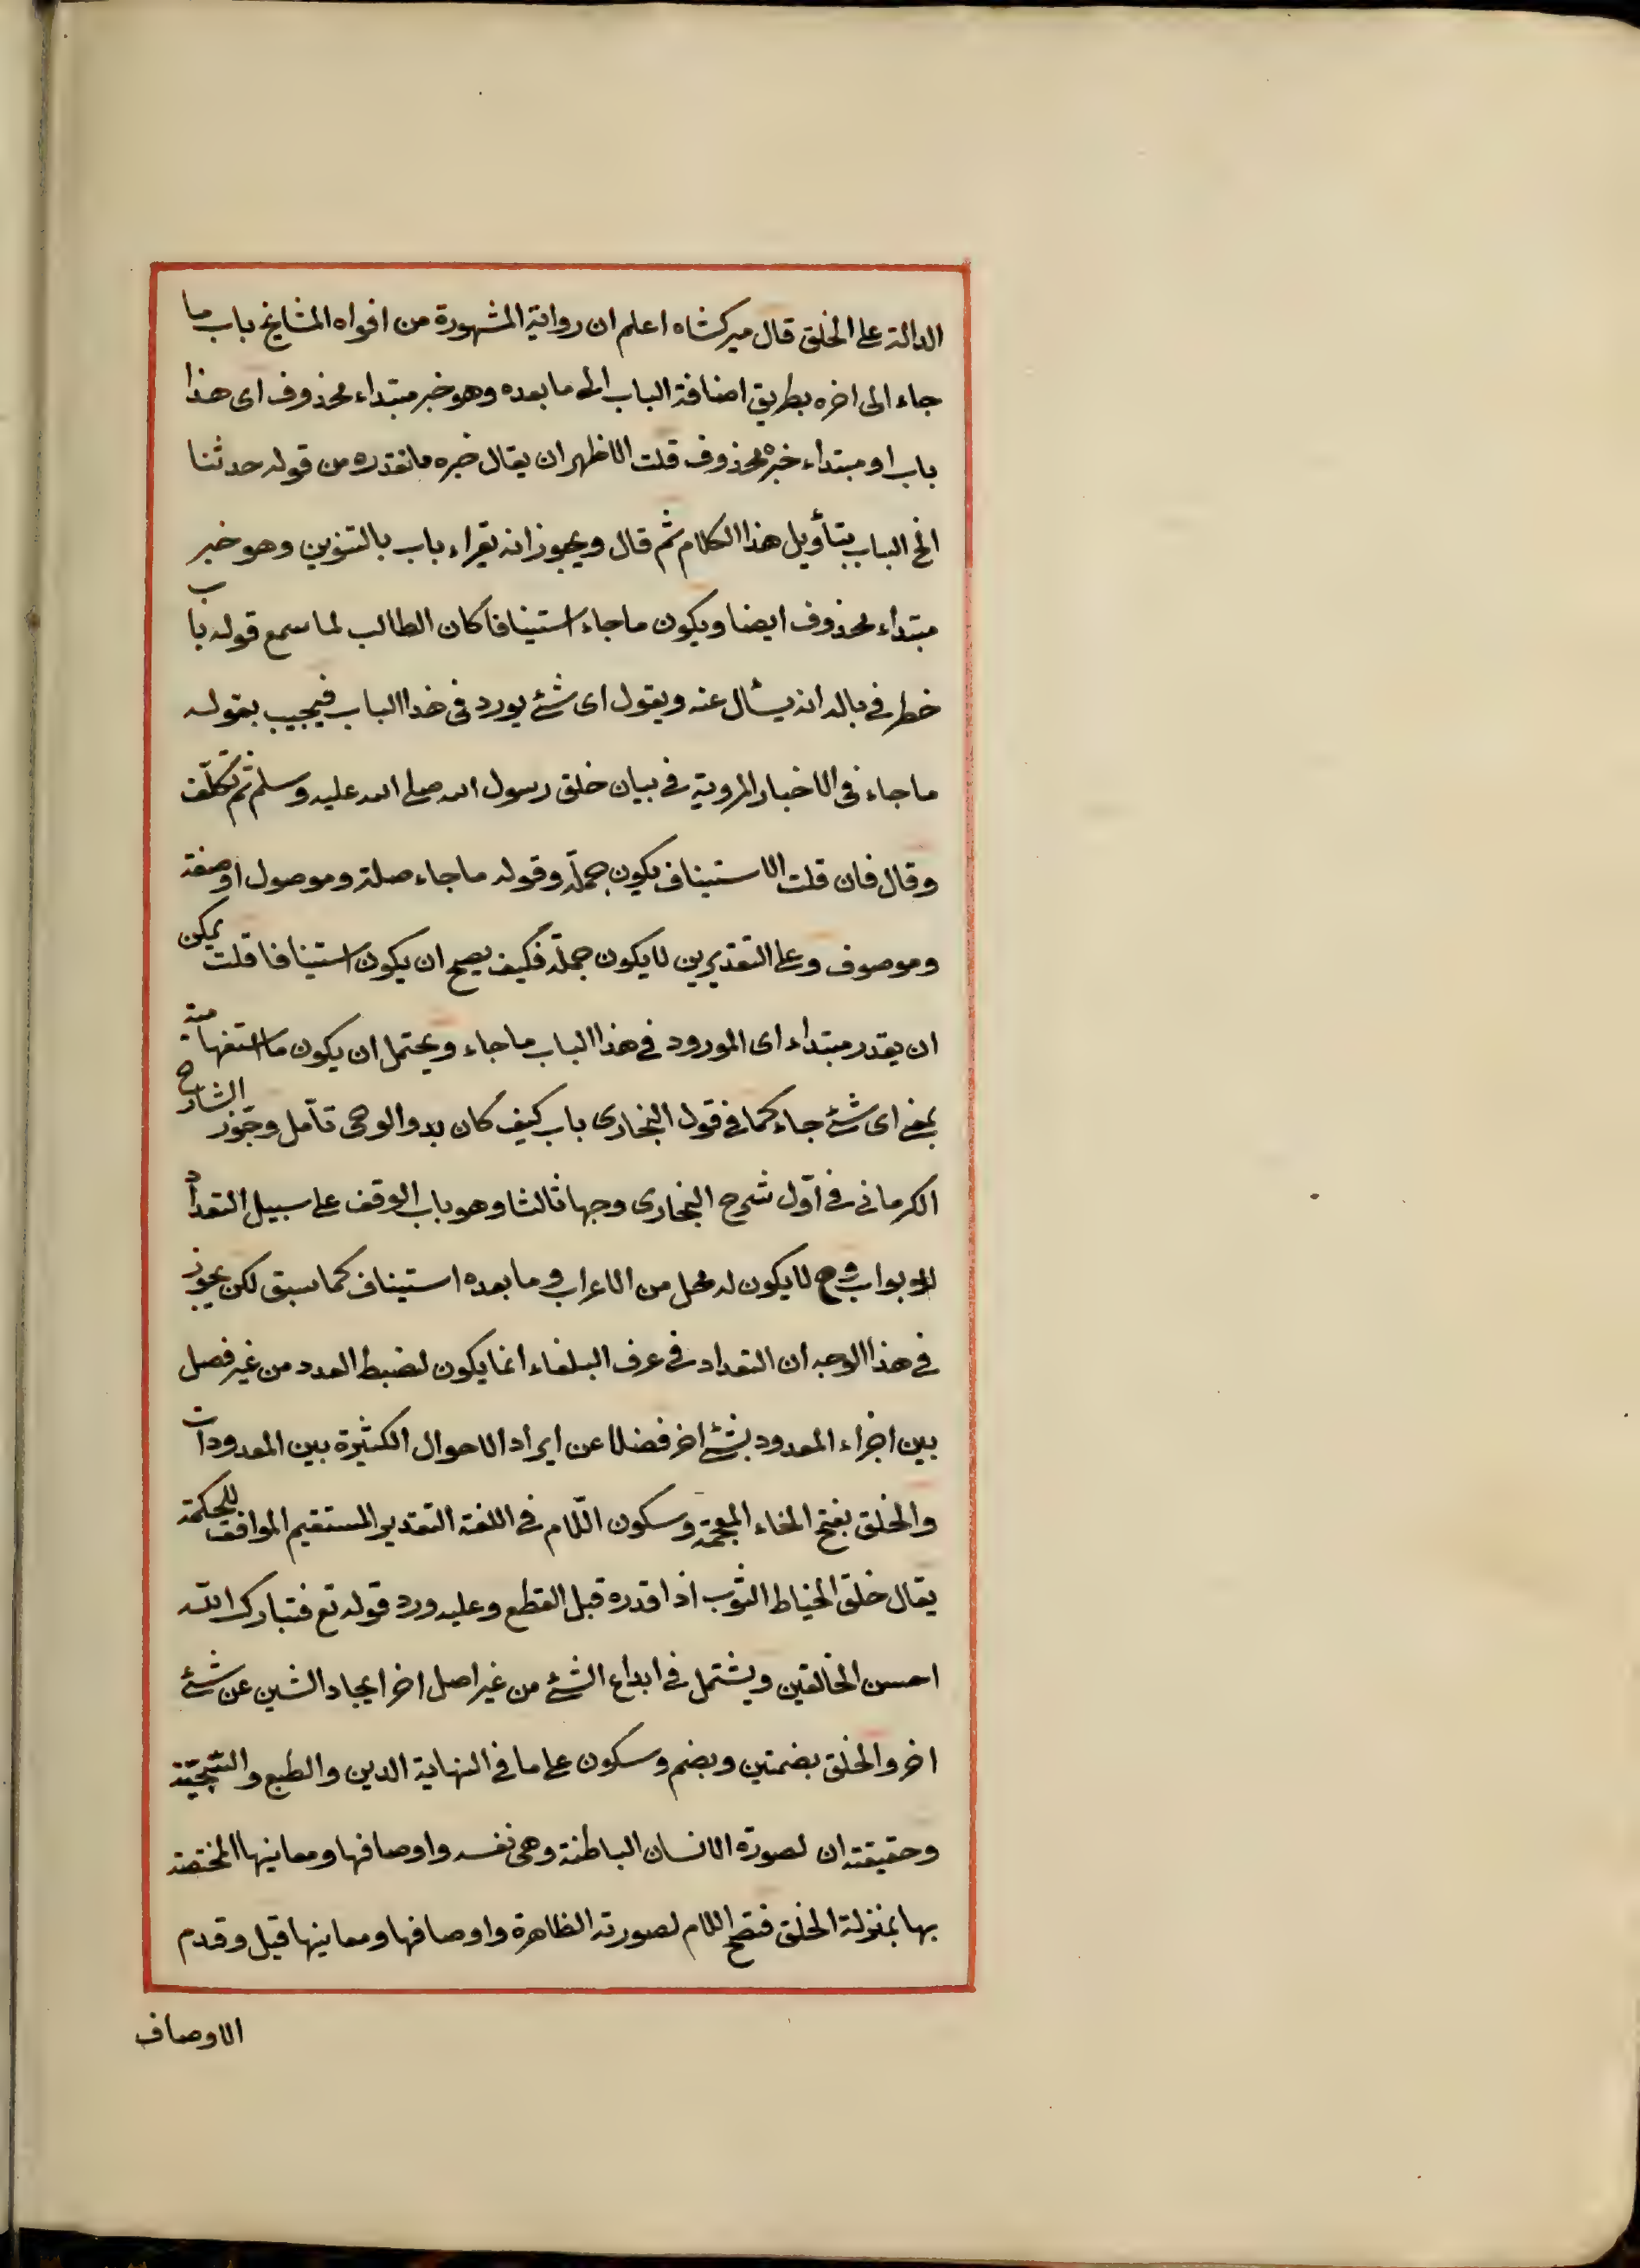 الدالة على الخلق قال ميركشاه اعلم ان رواية المشهورة من افواه المشايخ باب ما
جاء الى اخره بطريق اضافة الباب الى ما بعده وهو خبر مبتداء محذوف اى هذا
باب او مبتداء خبره محذوف قلت الاظهر ان يقال خبره ما نقدره من قوله حدثنا
الخ الباب بتأويل هذا الكلام ثم قال ويجوز انه يقراء باب بالتنوين وهو خبر
مبتداء محذوف ايضا ويكون ما جاء استينافا كان الطالب لما سمع قوله باب
خطر في باله انه يسأل عنه ويقول اى شئ يورد فى هذا الباب فيجيب بقوله
ما جاء فى الاخبار المروية في بيان خلق رسول الله صلى الله عليه وسلم ثم تكلّف
وقال فان قلت الاستيناف يكون جملة وقوله ما جاء صلة وموصول او صفة
وموصوف وعلى التقديرين لا يكون جملة فكيف يصح ان يكون استينافا قلت يمكن
ان يقدر مبتداء اى المورود في هذا الباب ما جاء ويحتمل ان يكون ما استفهامية
بمعنى اى شئ جاء كما في قول البخارى باب كيف كان بدو الوحى تأمل وجّوز الشارح
الكرماني في اوّل شرح البخارى وجها ثالثا وهو باب الوقف على سبيل التعداد
للابواب وح لا يكون له محل من الاعراب وما بعده استيناف كما سبق لكن يجوز
في هذا الوجه ان التعداد في عرف البلغاء انما يكون لضبط العدد من غير فصل
بين اجزاء المعدود بشئ اخر فضلا عن ايراد الاحوال الكثيرة بين المعدودات
والخلق بفتح الخاء المعجمة وسكون اللّام في اللغة التقدير المستقيم الموافق للحكمة
يقال خلق الخياط الثوب اذا قدره قبل القطع وعليه ورد قوله تع فتبارك الله
احسن الخالقين ويشتمل في ابداع الشئ من غير اصل اخر ايجاد الشين عن شئ
اخر والخلق بضمتين وبضم وسكون على ما في النهاية الدين والطبع والسّجيّة
وحقيقته ان لصورة الانسان الباطنة وهى نفسه واوصافها ومعانيها المختصة
بها بمنزلة الخلق فتح اللام لصورته الظاهرة واوصافها ومعانيها قبل وقدم
الاوصاف